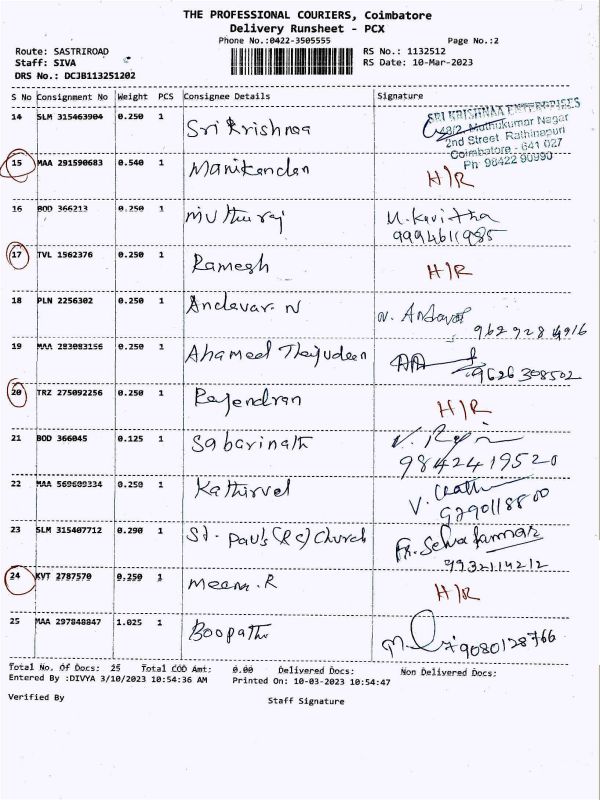 THE PROFESSIONAL COURIERS, Coimbatore
Delivery Runsheet - PCX
Phone No.:0422-3505555
Page No.:2
Route: SASTRIROAD
RS No.: 1132512
Staff: SIVA
RS Date: 10-Mar-2023
DRS No.: DCJB113251202
S No Consignment No Weight PCS Consignee Details Signature
14 SLM 315463904 0.250 1 Sri Krishnaa
SRI KRISHNAA ENTERPRISES
48/2, Muthukumar Nagar
2nd Street, Rathinapuri
Coimbatore - 641 027
Ph: 98422 90990
15 MAA 291590683 0.540 1 Manikandan H/R
16 BOD 366213 0.250 1 Muthuraj M. Kavitha
9994611985
17 TVL 1562376 0.250 1 Ramesh H/R
18 PLN 2256302 0.250 1 Andavar. N N. Andavar
9629284916
19 MAA 283083156 0.250 1 Ahamed Thajudeen
9626308502
20 TRZ 275092256 0.250 1 Rajendran H/R
21 BOD 366045 0.125 1 Sabarinath
9842419520
22 MAA 569609334 0.250 1 Kathirvel V.
23 SLM 315407712 0.290 1 St. Paul's (RC) Church Fr. Selva
24 KVT 2787570 0.250 1 Meena. R H/R
25 MAA 297848847 1.025 1 Boopathi
9080128766
Total No. Of Docs: 25 Total COD Amt: 0.00 Delivered Docs: Non Delivered Docs:
Entered By :DIVYA 3/10/2023 10:54:36 AM Printed On: 10-03-2023 10:54:47
Verified By Staff Signature